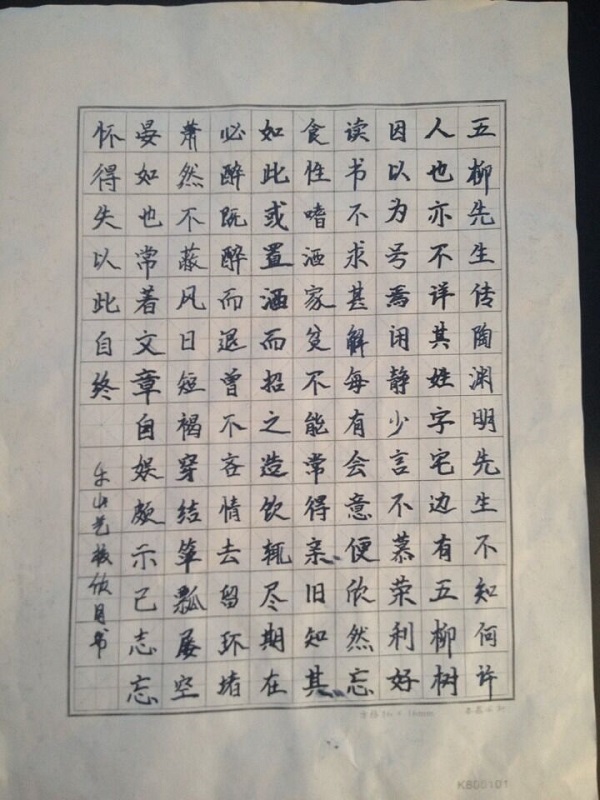 五柳先生传陶渊明先生不知何许
人也亦不详其姓字宅边有五柳树
因以为号焉闲静少言不慕荣利好
读书不求甚解每有会意便欣然忘
食性嗜酒家贫不能常得亲旧知其
如此或置酒而招之造饮辄尽期在
必醉既醉而退曾不吝情去留环堵
萧然不蔽风日短褐穿结箪瓢屡空
晏如也常著文章自娱颇示己志忘
怀得失以此自终
乐山艺校 书
K800101